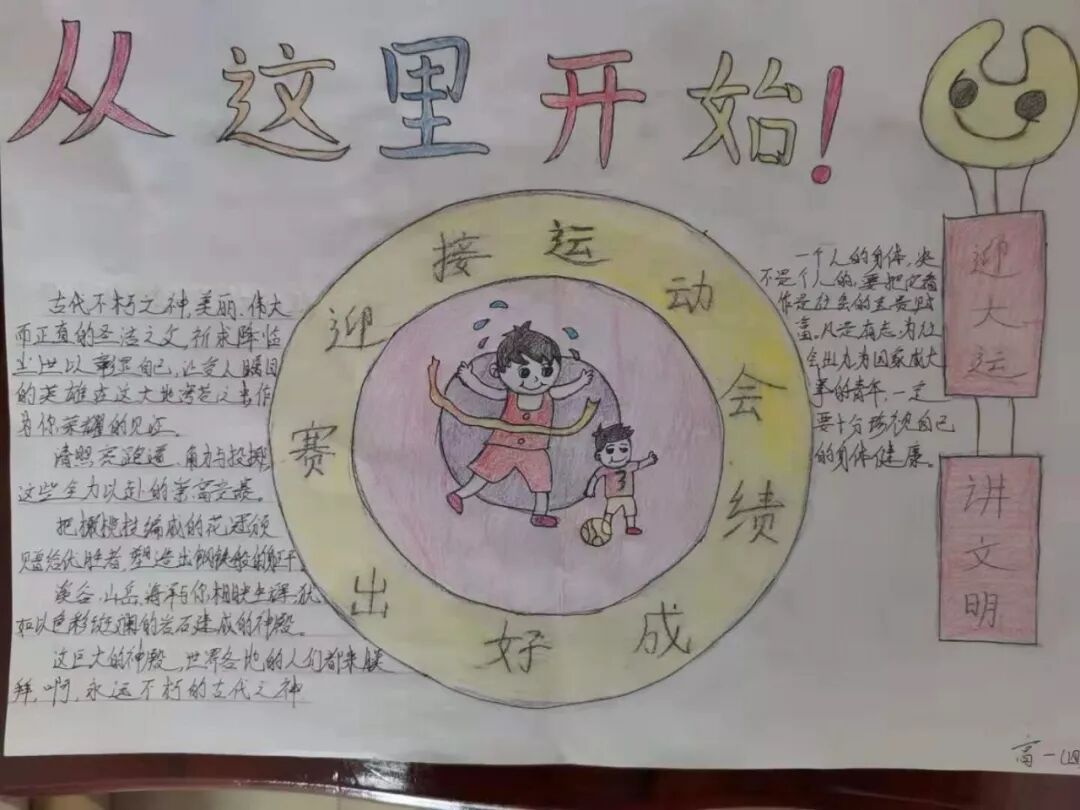 从这里开始!
迎接运动会赛出好成绩
古代不朽之神,美丽、伟大
而正直的圣洁之父,祈求降临
尘世以彰显自己,让受人瞩目
的英雄在这大地穹苍之中作
为你荣耀的见证。
请照亮跑道、角力与投掷
这些全力以赴的崇高竞赛。
把橄榄枝编成的花冠颁
赠给优胜者,塑造出钢铁般的躯干
溪谷、山岳、海洋与你相映生辉,犹
如以色彩斑斓的岩石建成的神殿。
这巨大的神殿,世界各地的人们都来膜
拜,啊,永远不朽的古代之神
一个人的身体,决
不是个人的,要把它看
作是社会的宝贵财
富。凡是有志为社
会出力,为国家成大
事的青年,一定
要十分珍视自己
的身体健康。
迎大运
讲文明
高一